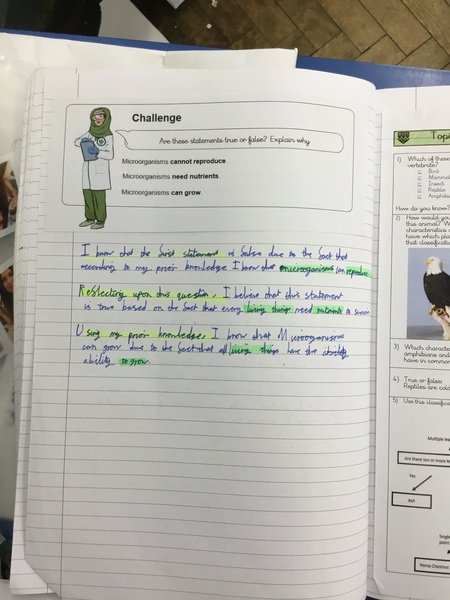 Challenge
Are these statements true or false? Explain why
Microorganisms cannot reproduce.
Microorganisms need nutrients.
Microorganisms can grow.
I know that the first statement is false due to the fact that
according to my prior knowledge I know that microorganisms can reproduce
Reflecting upon this question, I believe that this statement
is true based on the fact that every living things need nutrients to
Using my prior knowledge, I know that Microorganisms
can grow due to the fact that all living things have the
ability to grow.
Topi
1) Which of these
vertebrate?
Bird
Mammal
Insect
Reptile
Amphib
How do you know?
2) How would you
this animal? W
characteristics
have which pla
that classificati
3) Which characte
amphibians and
have in commo
4) True or false:
Reptiles are cold
5) Use this classifica
Multiple lea
Are there ten or more le
Yes
Ash
Singl
point
Horse Chestnut